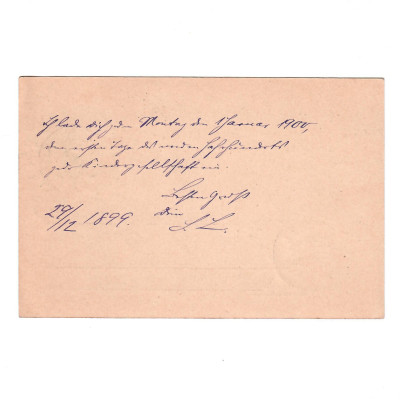 Ich lade dich zum Montag den 1 Januar 1900,
den ersten Tage des neuen Jahrhunderts
zur Kindergesellschaft ein.
Besten Gruß
29/12 1899. Dein
S. L.